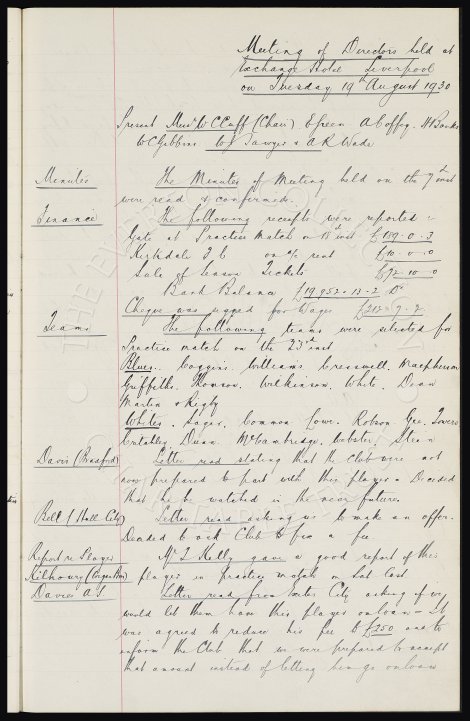 Meeting of Directors held at
Exchange Hotel Liverpool
on Tuesday 19th August 1930
Present Messrs W C Cuff (Chair) E Green A Coffey. H Banks
W C Gibbins W J Sawyer & A R Wade
Minutes The Minutes of Meeting held on the 7th inst
were read & confirmed.
Finance The following receipts were reported:-
Gate at Practice Match on inst £159.0.3
Kirkdale F.C on a/c rent £10.0.0
Sale of Season Tickets £92.10.0
Bank Balance £19,952.13.2 Dr
Cheque was signed for Wages £212.7.7
Teams The following teams were selected for
Practice match on the 23rd inst
Blues. Coggins. Williams. Cresswell. Macpherson
Griffiths. Thomson. Wilkinson. White. Dean
Martin & Rigby
Whites. Sagar. Common. Lowe. Robson. Gee. Towers
Critchley. Dunn. McCambridge. Webster. Stein
Davis (Bradford) Letter read stating that the Club were not
now prepared to part with this player. Decided
that he be watched in the near future.
Bell (Hull City) Letter read asking us to make an offer.
Decided to ask Club to fix a fee
Report re Player Mr T Kelly gave a good report of this
Kilhoury player in practice match on Sat last
Davies A.L Letter read from City asking if we
would let them have this player on loan - It
was agreed to reduce his fee to £250 and to
inform the Club that we were prepared to accept
that amount instead of letting him go on loan